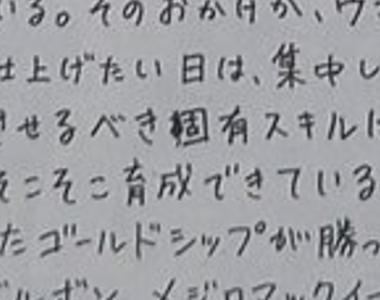 いる。そのおかげか、ウ
仕上げたい日は、集中し
させるべき固有スキルに
そこそこ育成できている
たゴールドシップが勝っ
ドルボン、メジロマックイー